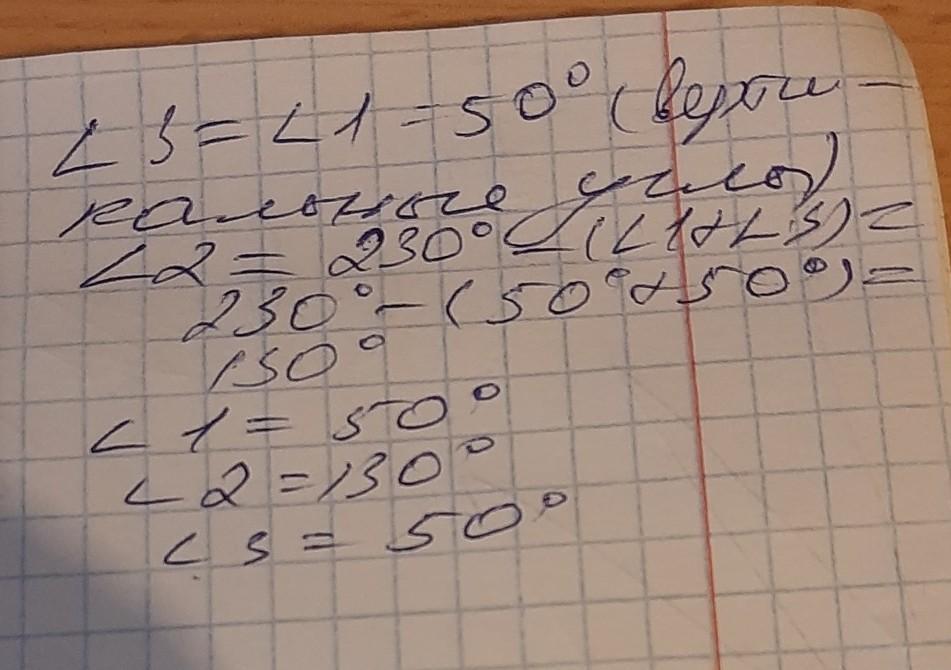 ∠3 = ∠1 = 50° (верти-
кальные углы)
∠2 = 230° - (∠1 + ∠3) =
230° - (50° + 50°) =
130°
∠1 = 50°
∠2 = 130°
∠3 = 50°